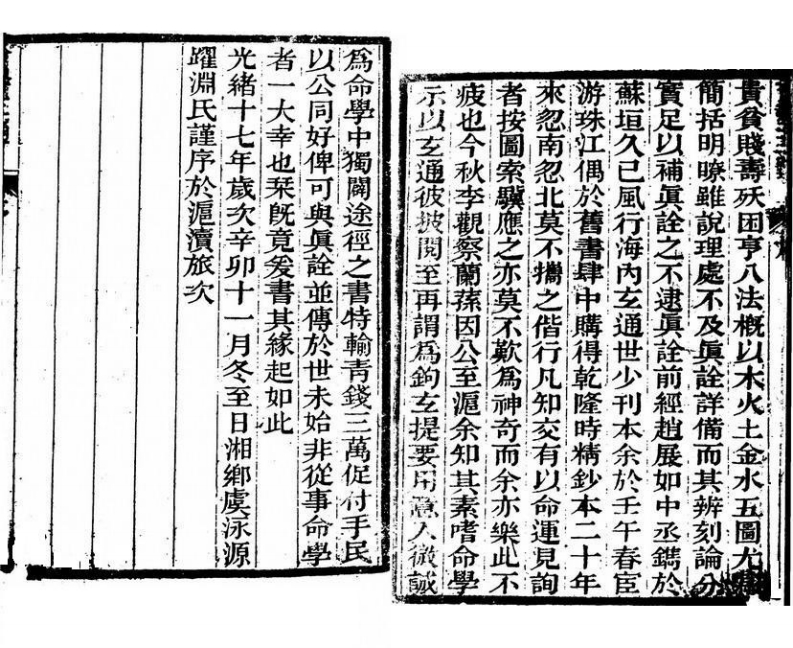 貴貧賤壽殀困亨八法槪以木火土金水五圖尤
簡括明瞭雖說理處不及眞詮詳備而其辨刻論分
實足以補眞詮之不逮眞詮前經趙展如中丞鐫於
蘇垣久已風行海內玄通世少刊本余於壬午春宦
游珠江偶於舊書肆中購得乾隆時精鈔本二十年
來忽南忽北莫不攜之偕行凡知交有以命運見詢
者按圖索驥應之亦莫不歎爲神奇而余亦樂此不
疲也今秋李觀察蘭蓀因公至滬余知其素嗜命學
示以玄通彼披閱至再謂爲鉤玄提要用意入微誠
爲命學中獨闢途徑之書特輸青錢三萬促付手民
以公同好俾可與眞詮並傳於世未始非從事命學
者一大幸也栞旣竟爰書其緣起如此
光緒十七年歲次辛卯十一月冬至日湘鄉虞泳源
躍淵氏謹序於滬瀆旅次